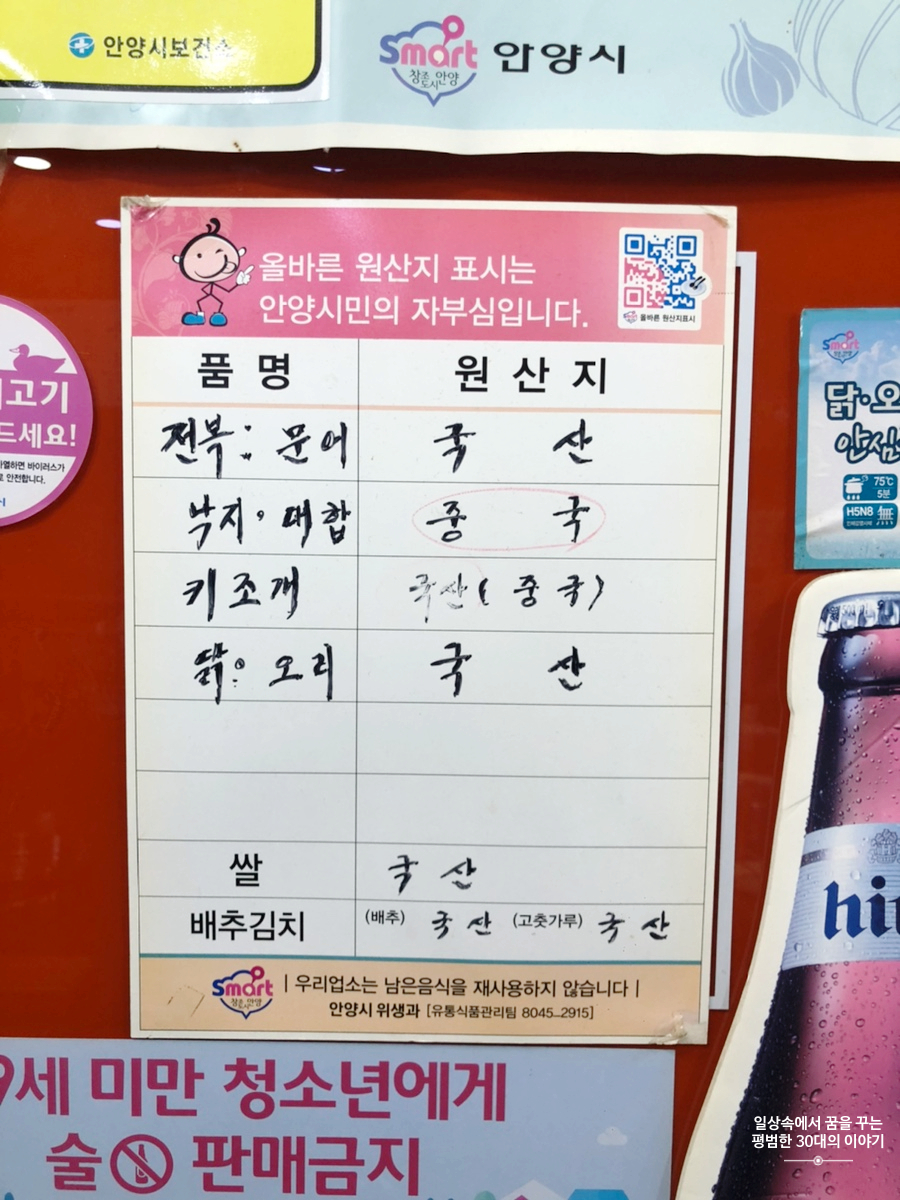 안양시보건소
Smart
창조 안양
도시
안양시
올바른 원산지 표시는
안양시민의 자부심입니다.
올바른 원산지표시
품명 원산지
전복: 문어 국산
낙지·대합 중국
키조개 국산(중국)
닭: 오리 국산
쌀 국산
배추김치 (배추) 국산 (고춧가루) 국산
Smart
창조 안양
도시
우리업소는 남은음식을 재사용하지 않습니다
안양시 위생과 [유통식품관리팀 8045-2915]
고기
드세요!
가열하면 바이러스가
안전합니다.
Smart
닭·오
안심
75℃
5분
H5N8 無
hi
9세 미만 청소년에게
술 판매금지
일상속에서 꿈을 꾸는
평범한 30대의 이야기